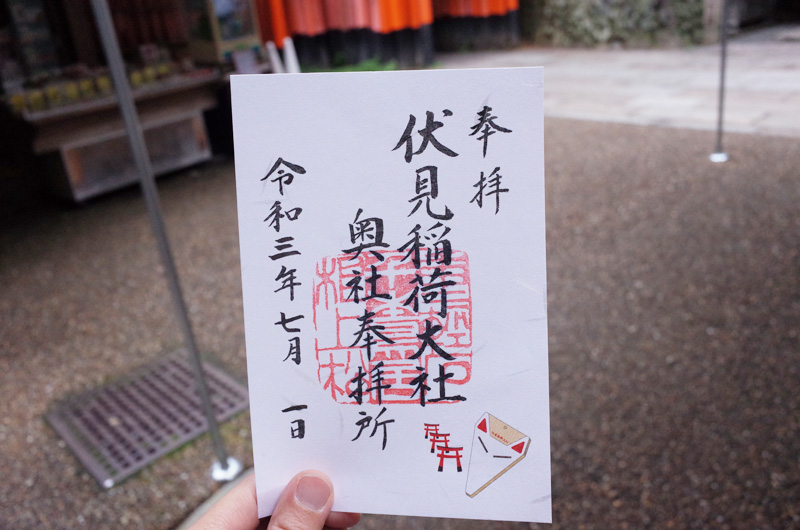 奉拝
伏見稲荷大社
奥社奉拝所
令和三年七月一日